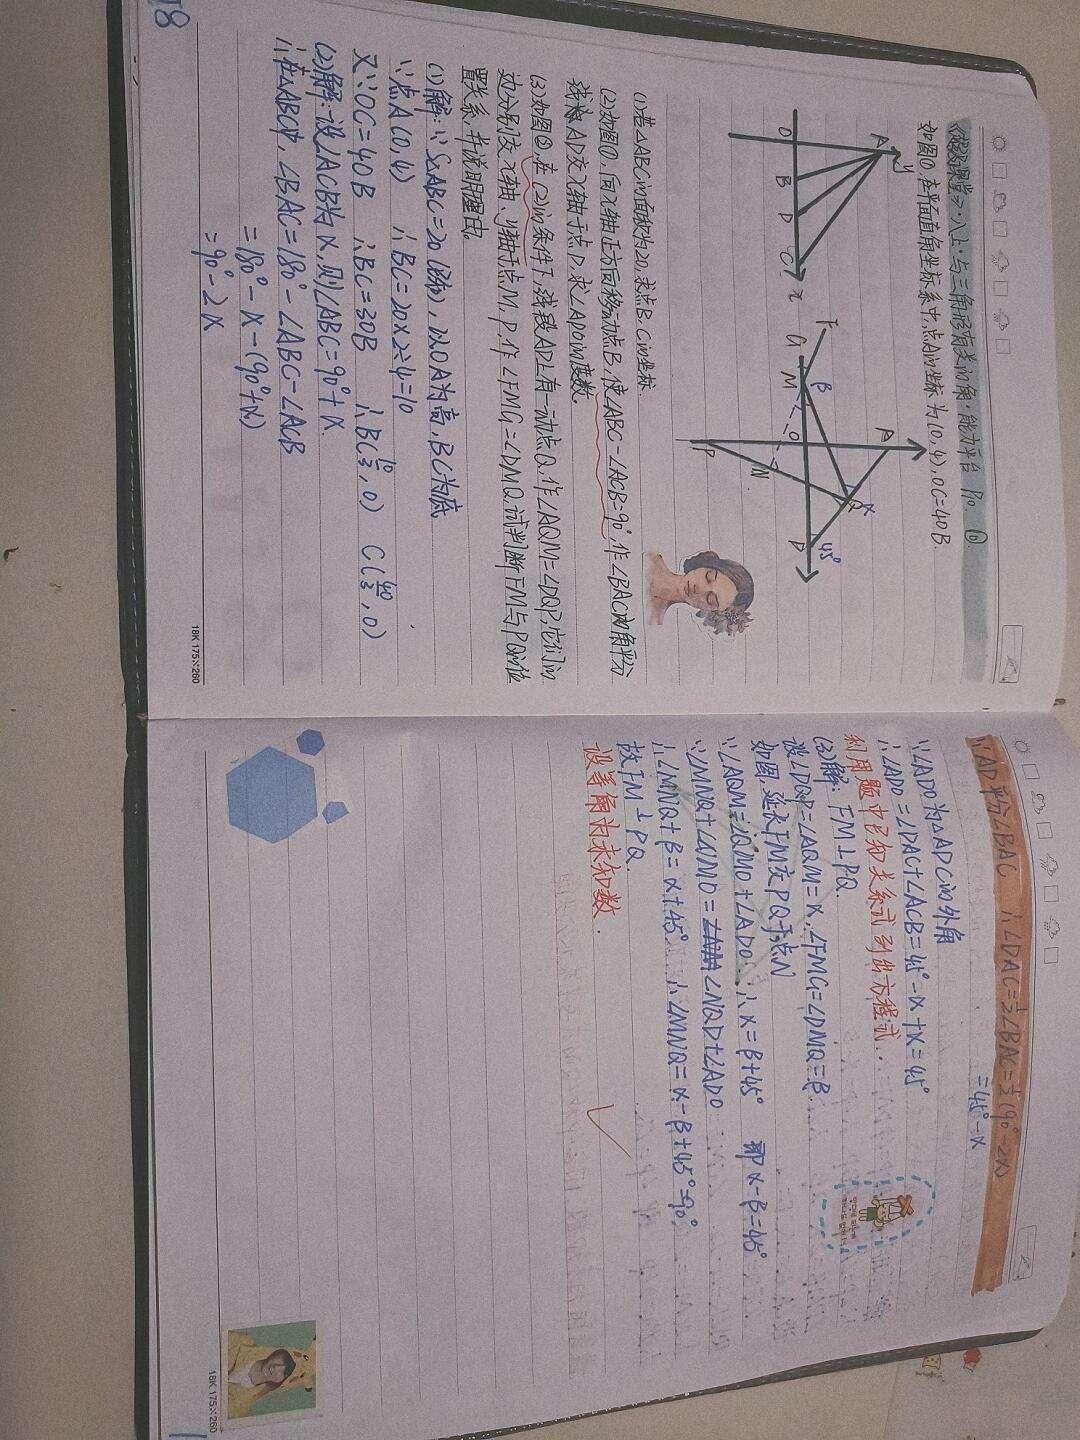 《一线课堂》·八上·与三角形有关的角·能力平台 P10 ⑩
如图①,在平面直角坐标系中,点A的坐标为(0,4),OC=4OB.
y
A
O B D C x
F
G
M β
O
A
P
N
Q α
D 45°
(1)若△ABC的面积为20,求点B、C的坐标.
(2)如图①,向x轴正方向移动点B,使∠ABC-∠ACB=90°,作∠BAC的角平分
线AD交x轴于点D,求∠ADO的度数.
(3)如图②,在(2)的条件下,线段AD上有一动点Q,作∠AQM=∠DQP,它们的
边分别交x轴、y轴于点M,P,作∠FMG=∠DMQ,试判断FM与PQ的位
置关系,并说明理由.
(1)解:∵S△ABC=20(已知),以OA为高,BC为底
∵点A(0,4) ∴BC=20×2÷4=10
又∵OC=4OB ∴BC=3OB ∴B(10/3,0) C(40/3,0)
(2)解:设∠ACB为x,则∠ABC=90°+x.
∴在△ABC中,∠BAC=180°-∠ABC-∠ACB
=180°-x-(90°+x)
=90°-2x
18K 175×260
78
∵AD平分∠BAC ∴∠DAC=½∠BAC=½(90°-2x)
=45°-x
∵∠ADO为△ADC的外角
∴∠ADO=∠DAC+∠ACB=45°-x+x=45°
利用题中已知关系式列出方程式.
(3)解:FM⊥PQ.
设∠DQP=∠AQM=α,∠FMG=∠DMQ=β
如图,延长FM交PQ于点N
∵∠AQM=∠QMO+∠ADO ∴α=β+45° 即α-β=45°
∵∠MNQ+∠NMO=∠NQD+∠ADO
∴∠MNQ+β=α+45° ∴∠MNQ=α-β+45°=90°
故FM⊥PQ.
设等角为未知数.
18K 175×260